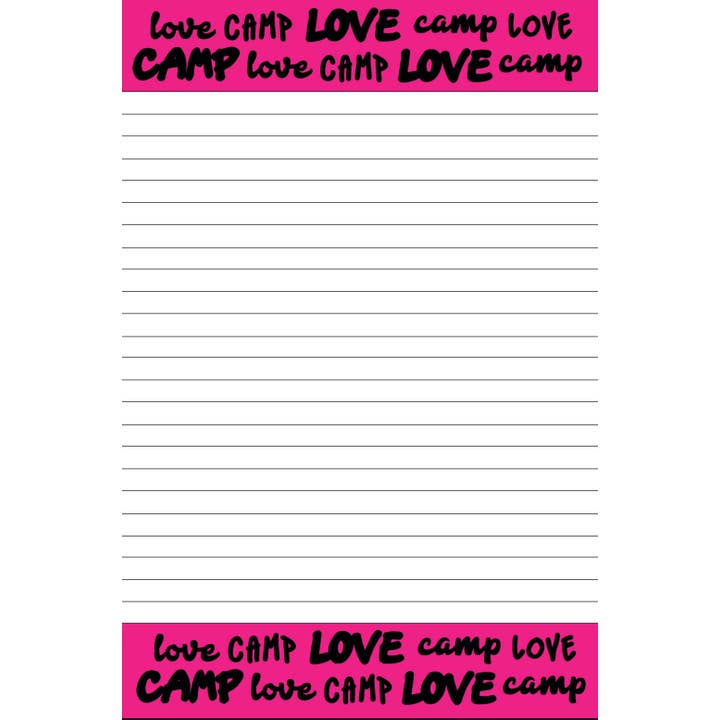 love CAMP LOVE camp LOVE
CAMP love CAMP LOVE camp
love CAMP LOVE camp LOVE
CAMP love CAMP LOVE camp